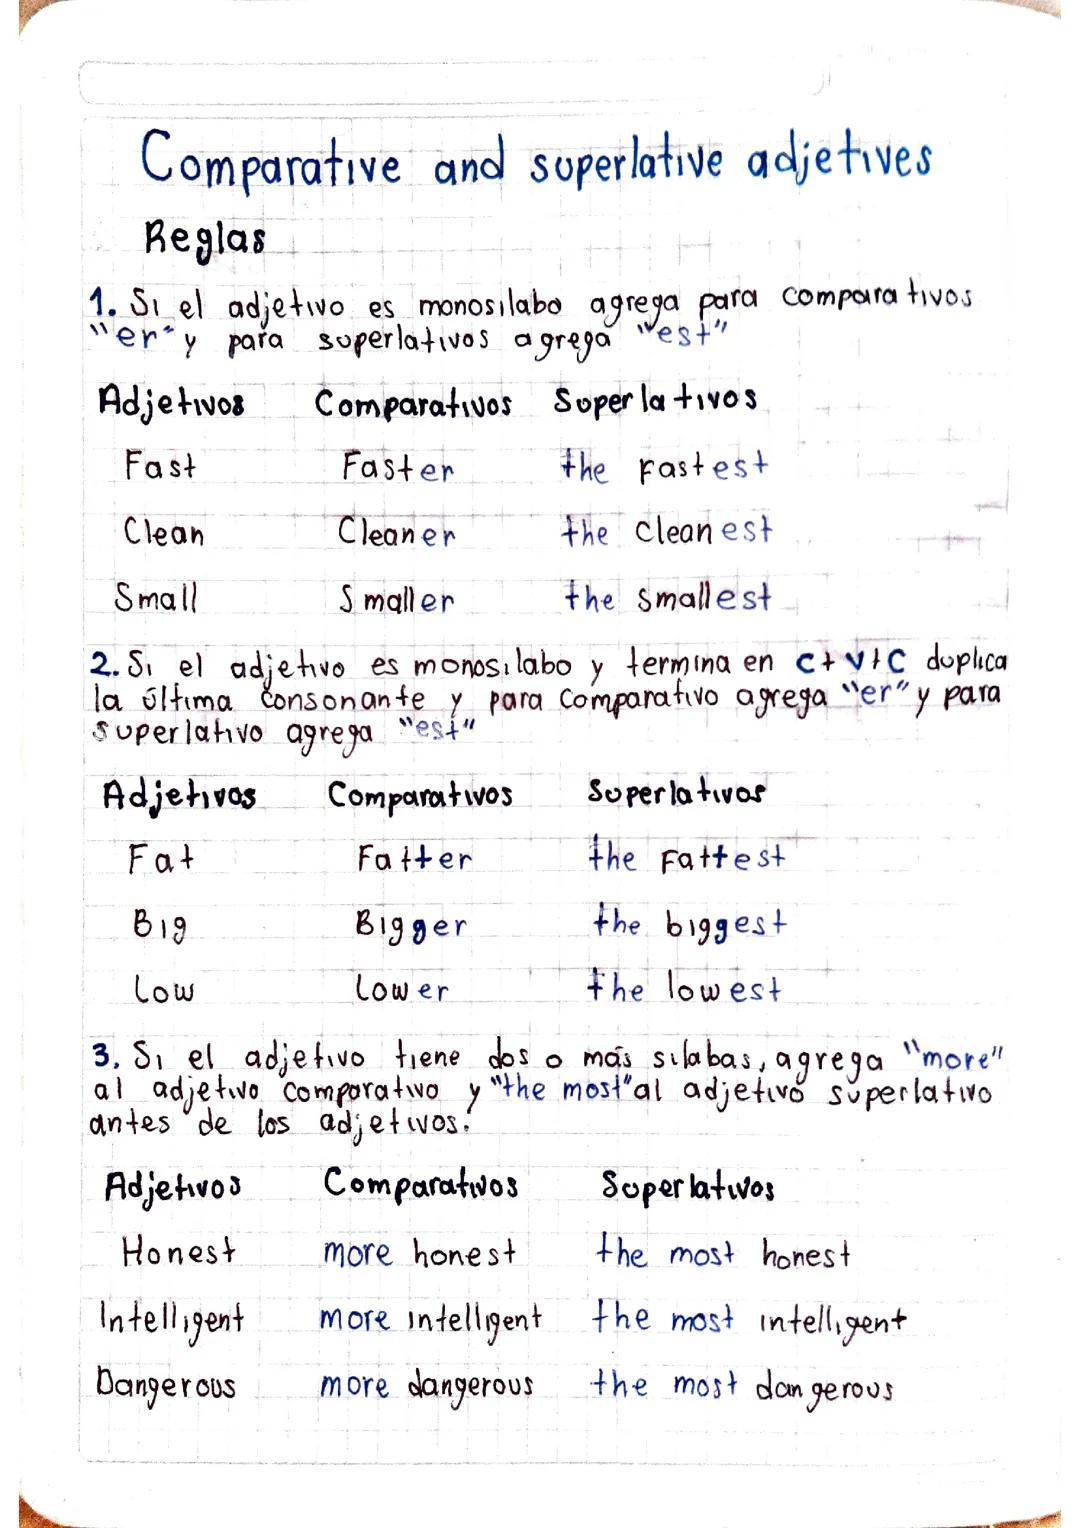 Comparative and superlative adjetives
Reglas
1. Si el adjetivo es monosilabo agrega para comparativos
"er" y para superlativos agrega "est"
Adjetivos Comparativos Superlativos
Fast Faster the Fastest
Clean Cleaner the Cleanest
Small Smaller the smallest
2. Si el adjetivo es monosilabo y termina en C+V+C duplica
la última consonante y para comparativo agrega "er" y para
superlativo agrega "est"
Adjetivos Comparativos Superlativos
Fat Fatter the Fattest
Big Bigger the biggest
Low Lower the lowest
3. Si el adjetivo tiene dos o más silabas, agrega "more"
al adjetivo comparativo y "the most" al adjetivo superlativo
antes de los adjetivos.
Adjetivos Comparativos Superlativos
Honest more honest the most honest
Intelligent more intelligent the most intelligent
Dangerous more dangerous the most dangerous